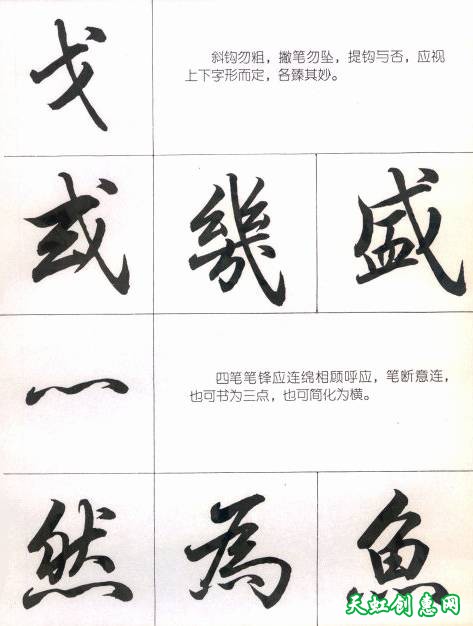 戈
斜钩勿粗，撇笔勿坠，提钩与否，应视
上下字形而定，各臻其妙。
或 幾 盛
灬
四笔笔锋应连绵相顾呼应，笔断意连，
也可书为三点，也可简化为横。
然 為 魚
天虹创意网